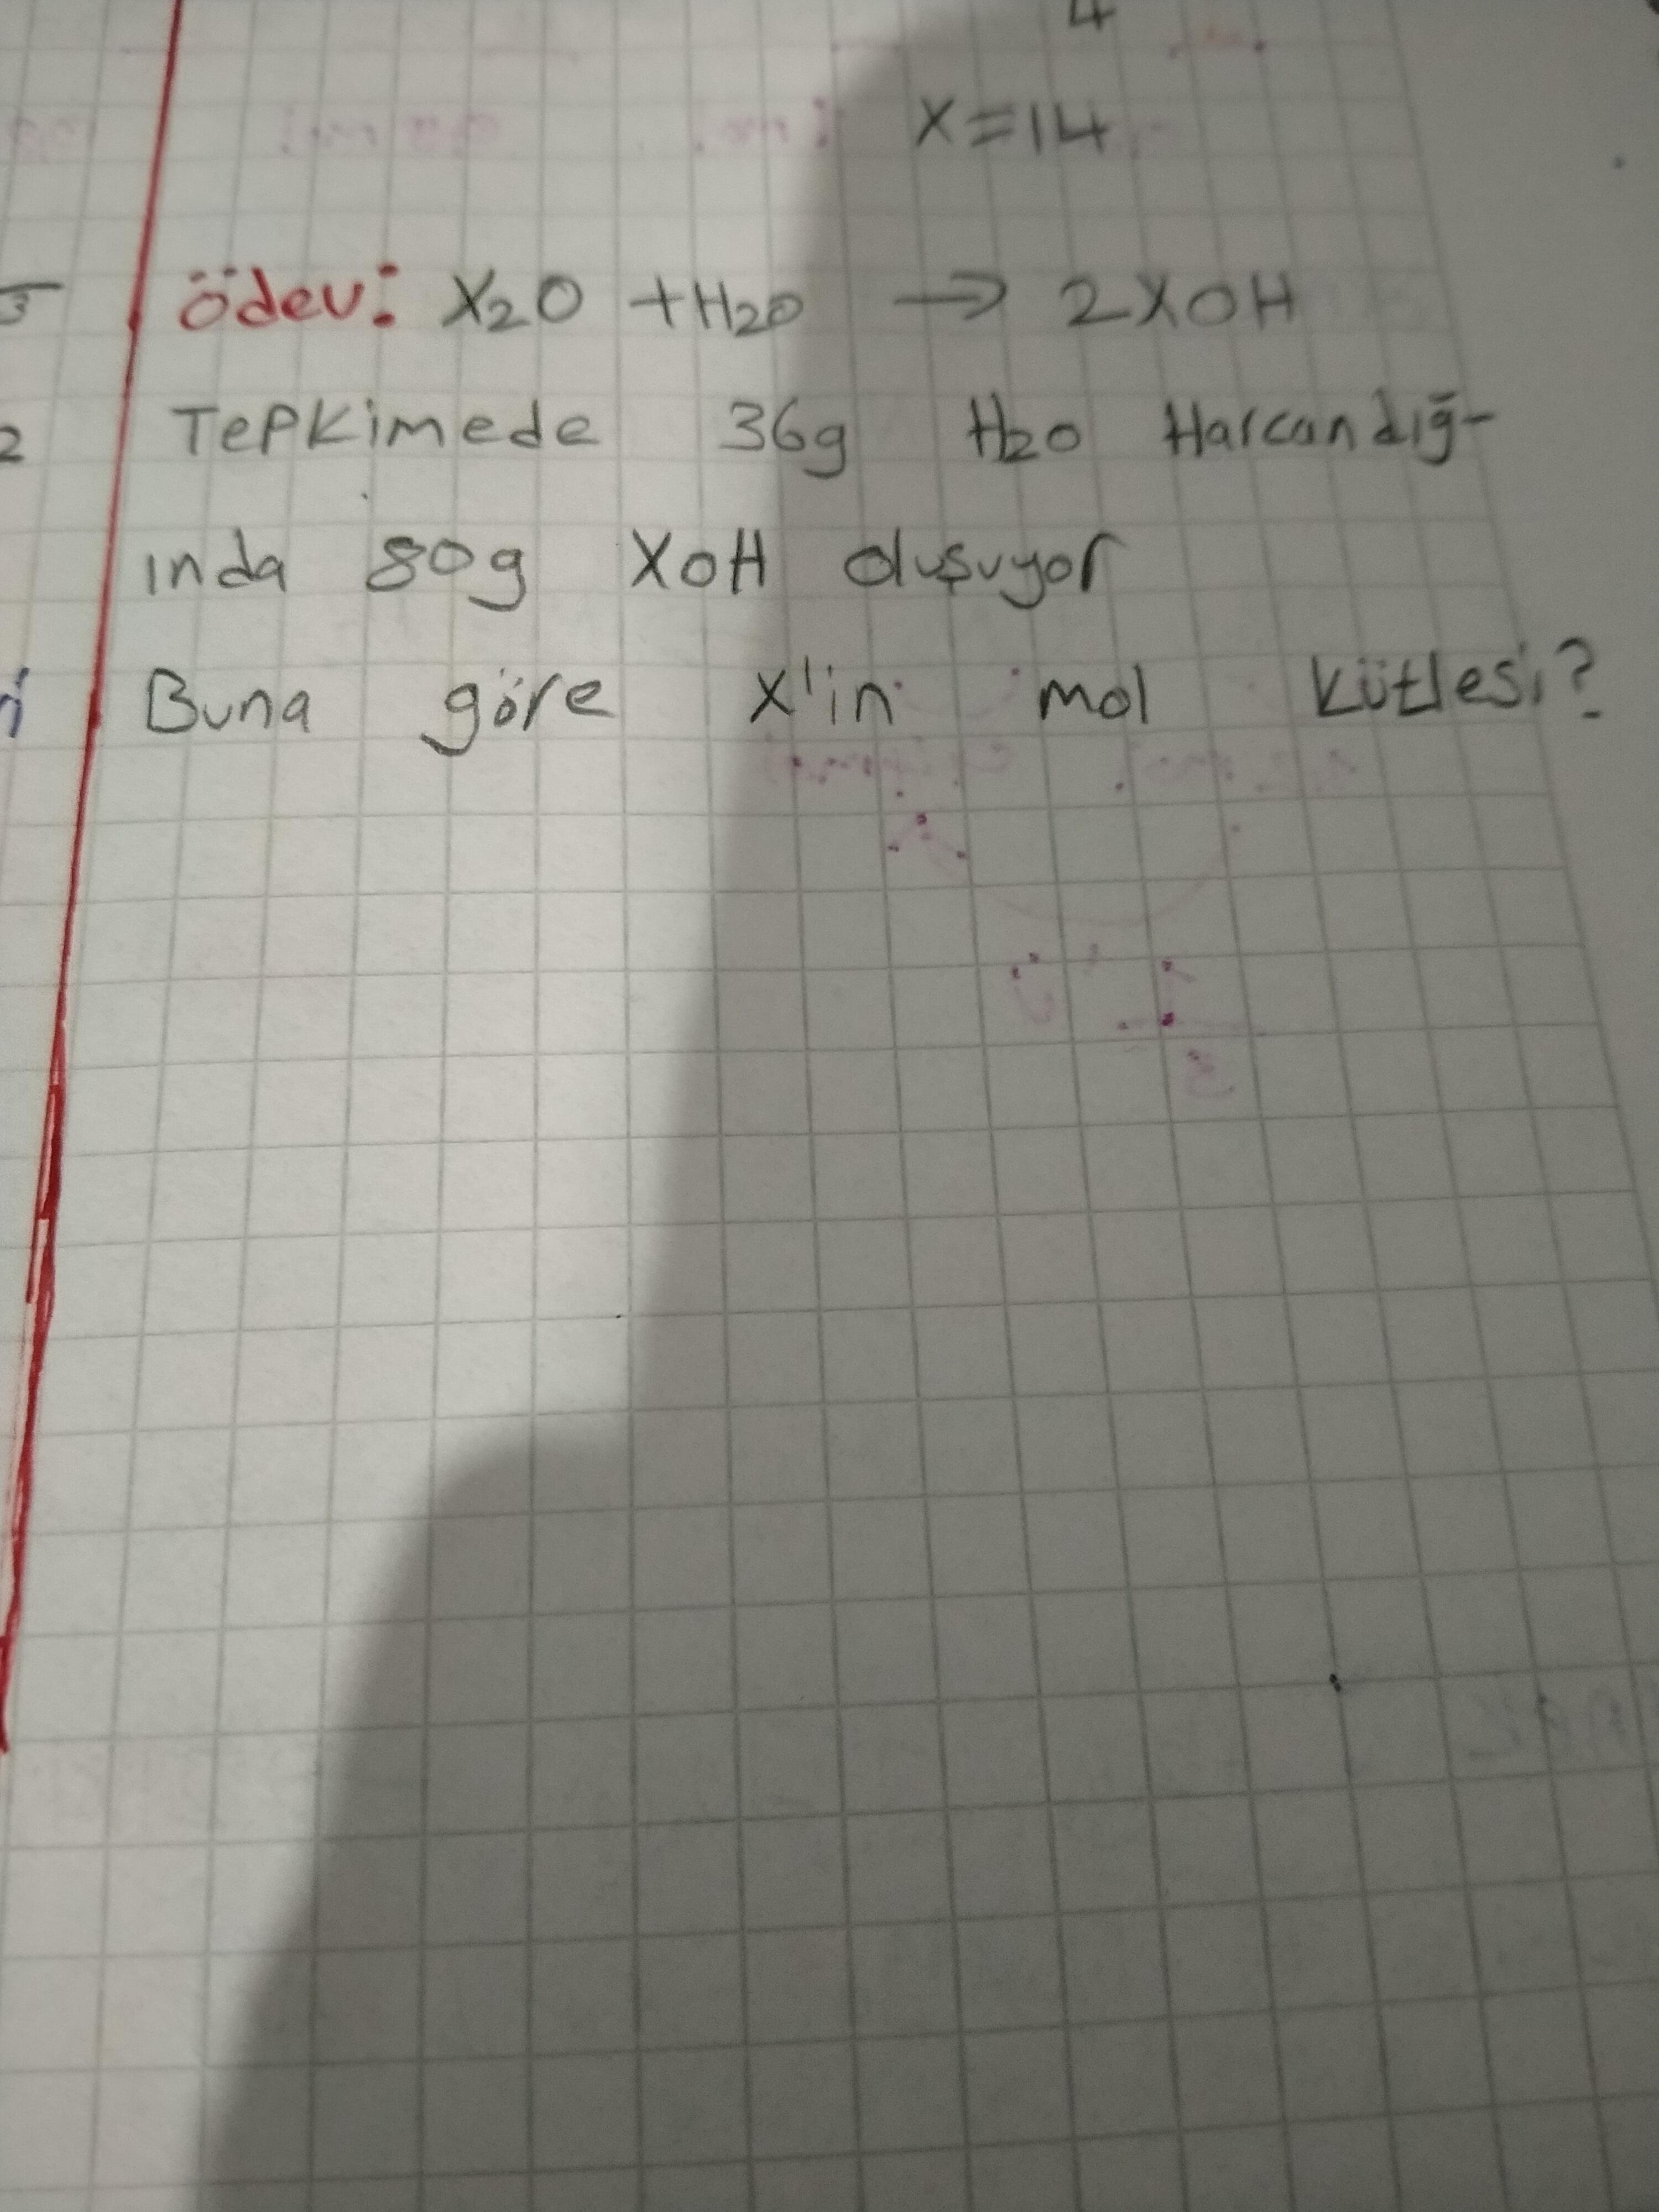 4
X=14
3
ödev: X₂O + H₂O → 2XOH
2 TepKimede 36g H₂O Harcandığ-
ında 80g XOH oluşuyor
Buna göre X'in mol kütlesi?